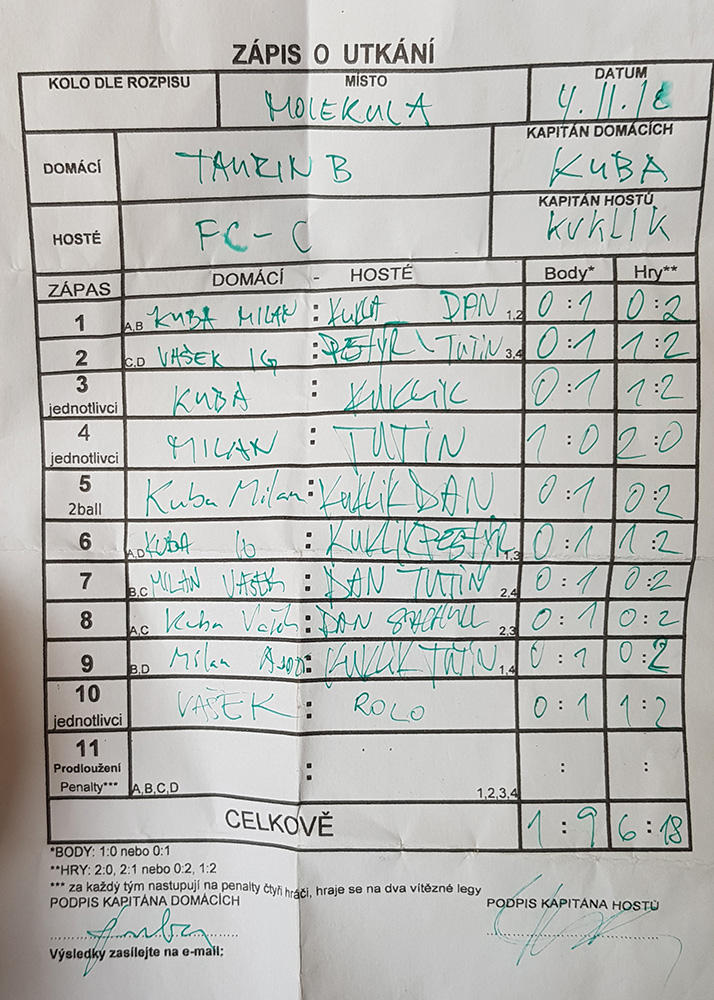 ZÁPIS O UTKÁNÍ
KOLO DLE ROZPISU MÍSTO DATUM
MOLEKULA 4.11.18
DOMÁCÍ TAURIN B KAPITÁN DOMÁCÍCH
KUBA
HOSTÉ FC-C KAPITÁN HOSTŮ
KUKLIK
ZÁPAS DOMÁCÍ - HOSTÉ Body* Hry**
1 A,B KUBA MILAN : KUKLA DAN 1,2 0:1 0:2
2 C,D VAŠEK IG : PETYR TUTIN 3,4 0:1 1:2
3 jednotlivci KUBA : KUKLIK 0:1 1:2
4 jednotlivci MILAN : TUTIN 1:0 2:0
5 2ball Kuba Milan : KUKLIK DAN 0:1 0:2
6 A,D KUBA : KUKLIK 1,3 0:1 1:2
7 B,C MILAN VAŠEK : DAN TUTIN 2,4 0:1 0:2
8 A,C Kuba Vašek : DAN 2,3 0:1 0:2
9 B,D Milan : KUKLIK TUTIN 1,4 0:1 0:2
10 jednotlivci VAŠEK : ROLO 0:1 1:2
11 Prodloužení Penalty*** A,B,C,D : 1,2,3,4 : :
CELKOVĚ 1:9 6:18
*BODY: 1:0 nebo 0:1
**HRY: 2:0, 2:1 nebo 0:2, 1:2
*** za každý tým nastupují na penalty čtyři hráči, hraje se na dva vítězné legy
PODPIS KAPITÁNA DOMÁCÍCH PODPIS KAPITÁNA HOSTŮ
Výsledky zasílejte na e-mail: